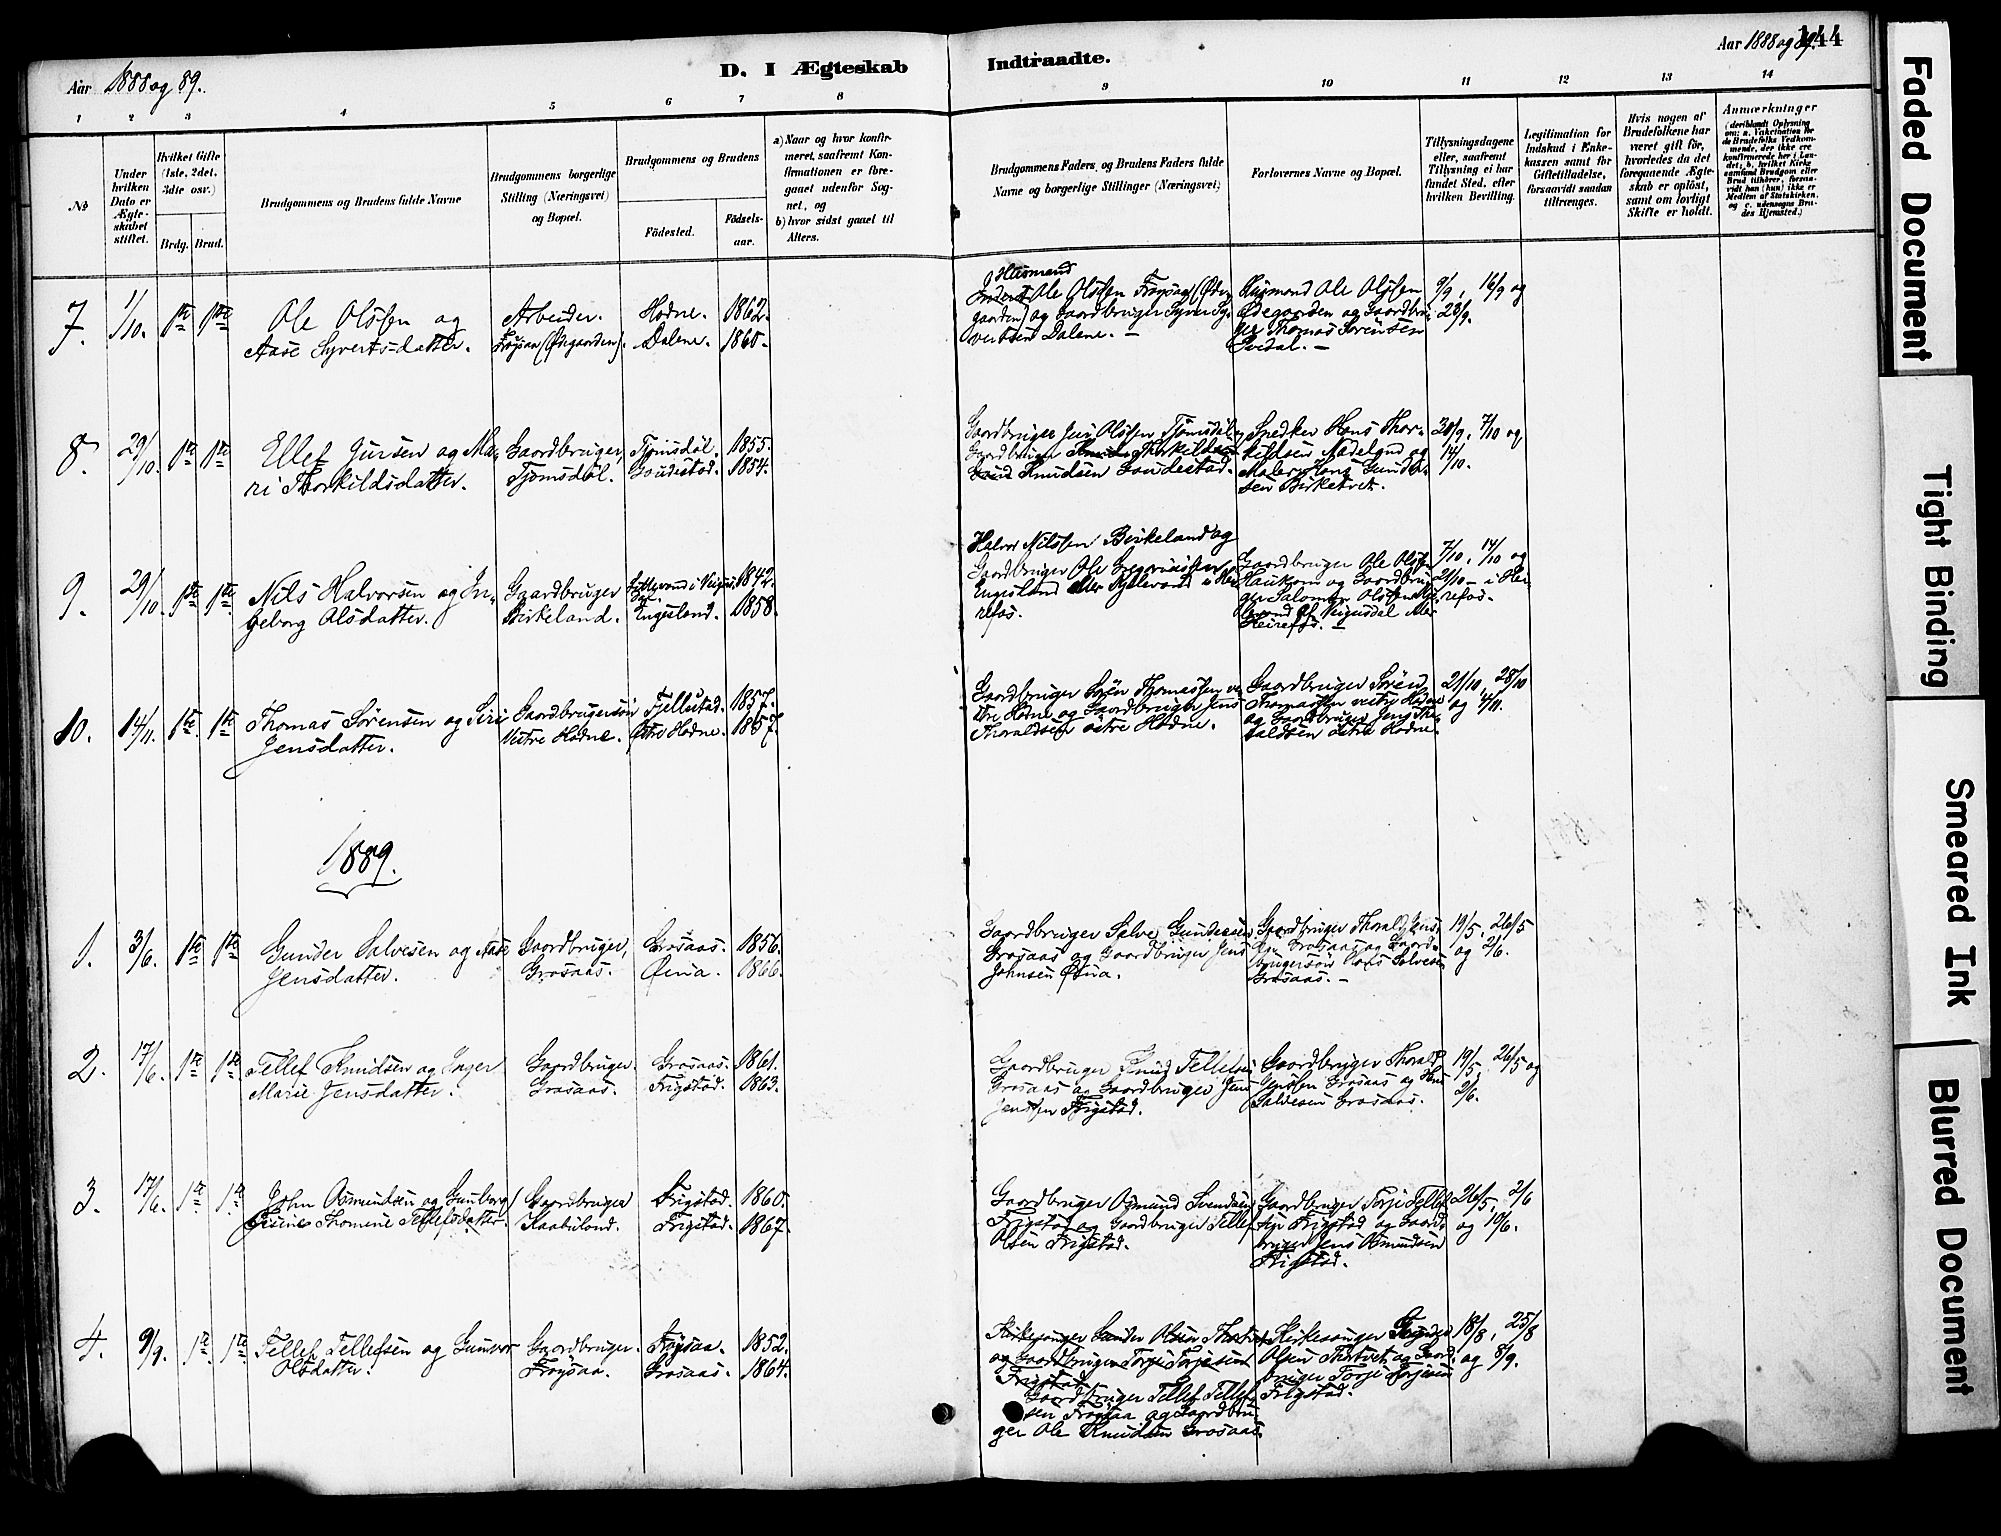 Aar 1888 og 89.
D. I Ægteskab Indtraadte.
Aar 1888 og 89.
144
1 2 3 4 5 6 7 8 9 10 11 12 13 14
№
Under hvilken Dato er Ægteskabet stiftet.
Hvilket Gifte (1ste, 2det, 3die osv.)
Brdg. Brud.
Brudgommens og Brudens fulde Navne
Brudgommens borgerlige Stilling (Næringsvei) og Bopæl.
Brudgommens og Brudens
Födested.
Födselsaar.
a) Naar og hvor konfirmeret, saafremt Konfirmationen er foregaaet udenfor Sognet, og
b) hvor sidst gaaet til Alters.
Brudgommens Faders og Brudens Faders fulde Navne og borgerlige Stillinger (Næringsvei)
Forlovernes Navne og Bopæl.
Tillysningsdagene eller, saafremt Tillysning ei har fundet Sted, efter hvilken Bevilling.
Legitimation for Indskud i Enkekassen samt for Giftetilladelse, forsaavidt saadan tiltrænges.
Hvis nogen af Brudefolkene har været gift før, hvorledes da det foregaaende Ægteskab er oplöst, samt om lovligt Skifte er holdt.
Anmærkninger
7. 1/10. 1ste 1ste
Ole Olsen og
Aase Syvertsdatter.
Arbeider.
Frøysaa (Ødegaarden).
Hodne. 1862.
Dalene. 1860.
Husmand
Inderst Ole Olsen Frøysaa (Øde-
gaarden) og Gaardbruger Syver Sy-
vertsen Dalene. –
Husmand Ole Olsen
Ødegaarden og Gaardbru-
ger Thomas Sørensen
9/9, 16/9 og
8. 29/10. 1ste 1ste
Ellef Jursen og Ma-
ri Thorkildsdatter.
Gaardbruger,
Tjomsdøl.
Tjomsdøl. 1855.
Goudestad. 1854.
Gaardbruger Juri Olsen Tjomsdøl og
Gaardbruger Thorkild
Knudsen Goudestad.
Snedker Hans Thor-
kildsen Nadeland og
Maler Hans Gunder-
sen Birketvet.
28/9, 7/10 og
14/10.
9. 29/10. 1ste 1ste
Nils Halvorsen og In-
geborg Olsdatter.
Gaardbruger
Birkeland.
1842.
Engesland. 1858.
Halvor Nilssen Birkeland og
Gaardbruger Ole
Engesland
refos.
Gaardbruger Ole Ols
Haukom og Gaardbru-
ger Salomon Olsen
7/10, 14/10 og
21/10 – i He-
refos.
10. 14/11. 1ste 1ste
Thomas Sørensen og Siri
Jensdatter.
Gaardbrugersøn
Vestre Hodne.
Fjellestad. 1857.
Østre Hodne. 1857.
Gaardbruger Sørén Thomassen ve-
stre Hodne og Gaardbruger Jens
Thoraldsen østre Hodne.
Gaardbruger Sørén
Thomassen vestre Hodne
og Gaardbruger Jens Tho-
raldsen østre Hodne.
21/10, 28/10
og 4/11.
1889.
1. 3/6. 1ste 1ste
Gunder Salvesen og Aase
Jensdatter.
Gaardbruger,
Grosaas.
Grosaas. 1856.
1866.
Gaardbruger Salve Gundersen
Grosaas og Gaardbruger Jens
Johnsen
Gaardbruger Thorald Jens-
sen Grosaas og Gaard-
brugersøn Salvesen
Grosaas. –
19/5, 26/5
og 2/6.
2. 17/6. 1ste 1ste
Tellef Knudsen og Inger
Marie Jensdatter.
Gaardbruger.
Grosaas.
Grosaas. 1861.
Frigstad. 1863.
Gaardbruger Knud Tellefsen
Grosaas og Gaardbruger Jens
Jenssen Frigstad.
Gaardbruger Thorald
Jenssen Grosaas og
Salvesen Grosaas.
19/5, 26/5 og
2/6.
3. 17/6. 1ste 1ste
John Osmundsen og Gunborg
Thomine Tellefsdatter.
Gaardbruger
Kaabuland.
Frigstad. 1860.
Frigstad. 1867.
Gaardbruger Osmund Svendsen
Frigstad og Gaardbruger Tellef
Olsen Frigstad.
Gaardbruger Torje Tellef-
sen Frigstad og Gaard-
bruger Jens Osmundsen
Frigstad.
26/5, 2/6
og 10/6.
4. 9/9. 1ste 1ste
Tellef Tellefsen og Gunvor
Olsdatter.
Gaardbruger.
Frøysaa.
Frøysaa. 1852.
Grosaas. 1864.
Kirkesanger Gunder Olsen
og Gaardbruger Torje Torjesen
Frigstad
Gaardbruger Tellef Tellef-
sen Frøysaa og Gaardbru-
ger Ole Knudsen Grosaas
Kirkesanger Gunder
Olsen Thortvet og Gaard-
bruger Torje Torjesen
Frigstad.
18/8, 25/8
og 8/9.
Faded Document
Tight Binding
Smeared Ink
Blurred Document